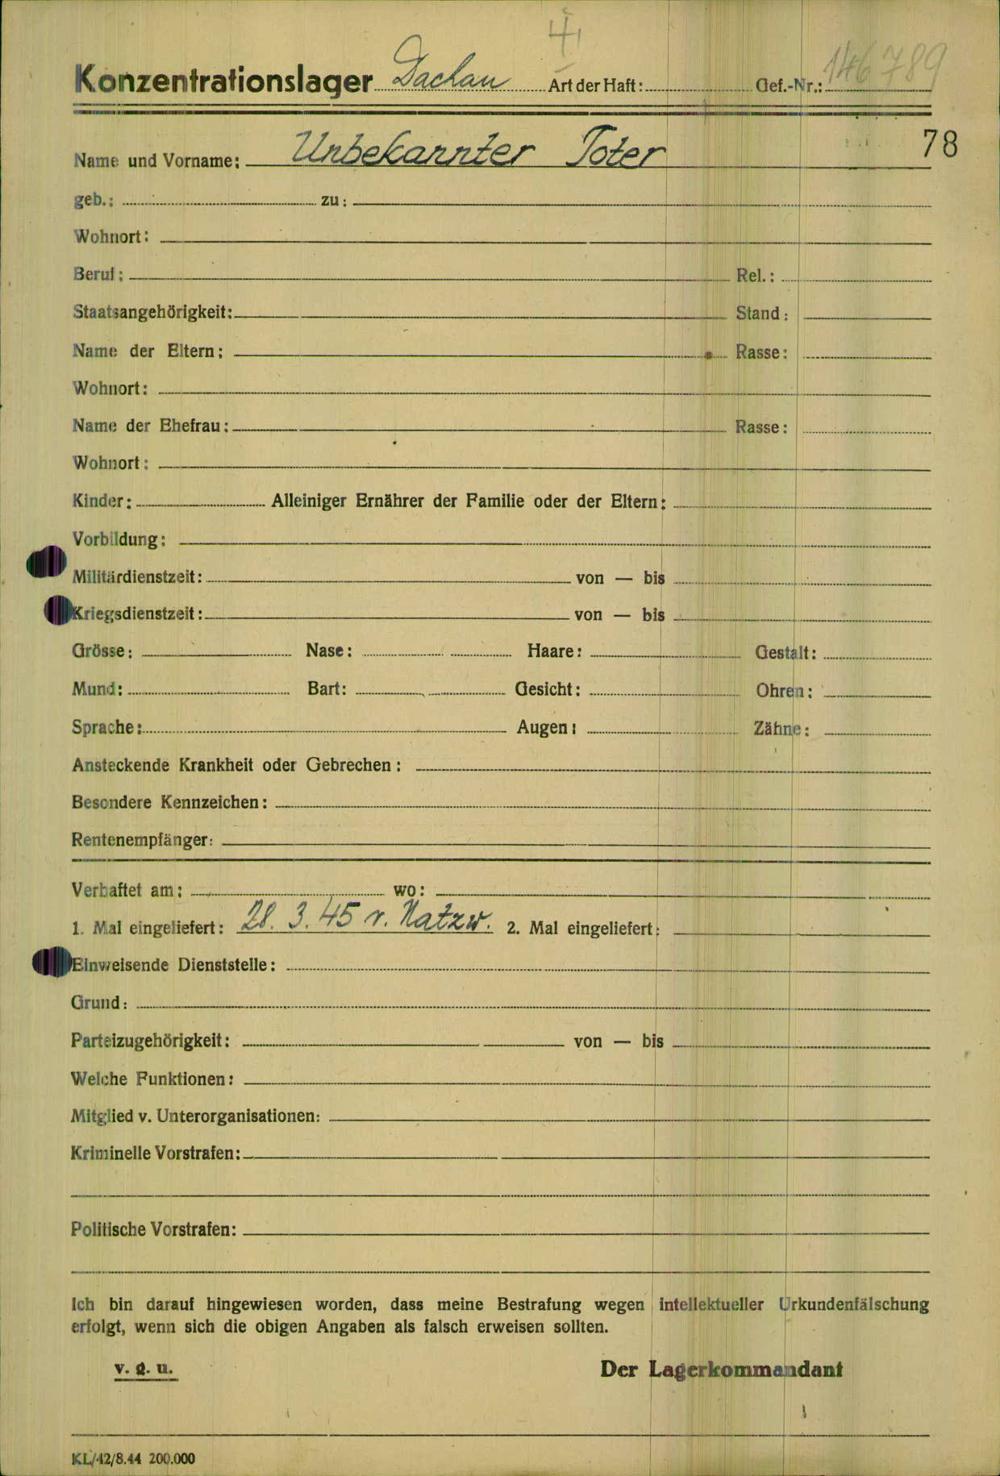 Konzentrationslager Dachau Art der Haft: Gef.-Nr.: 146789
78
Name und Vorname: Unbekannter Toter
geb.: zu:
Wohnort:
Beruf: Rel.:
Staatsangehörigkeit: Stand:
Name der Eltern: Rasse:
Wohnort:
Name der Ehefrau: Rasse:
Wohnort:
Kinder: Alleiniger Ernährer der Familie oder der Eltern:
Vorbildung:
Militärdienstzeit: von — bis
Kriegsdienstzeit: von — bis
Grösse: Nase: Haare: Gestalt:
Mund: Bart: Gesicht: Ohren:
Sprache: Augen: Zähne:
Ansteckende Krankheit oder Gebrechen:
Besondere Kennzeichen:
Rentenempfänger:
Verhaftet am: wo:
1. Mal eingeliefert: 28. 3. 45 v. Natzw. 2. Mal eingeliefert:
Einweisende Dienststelle:
Grund:
Parteizugehörigkeit: von — bis
Welche Funktionen:
Mitglied v. Unterorganisationen:
Kriminelle Vorstrafen:
Politische Vorstrafen:
Ich bin darauf hingewiesen worden, dass meine Bestrafung wegen intellektueller Urkundenfälschung
erfolgt, wenn sich die obigen Angaben als falsch erweisen sollten.
v. g. u. Der Lagerkommandant
KL/42/8.44 200.000